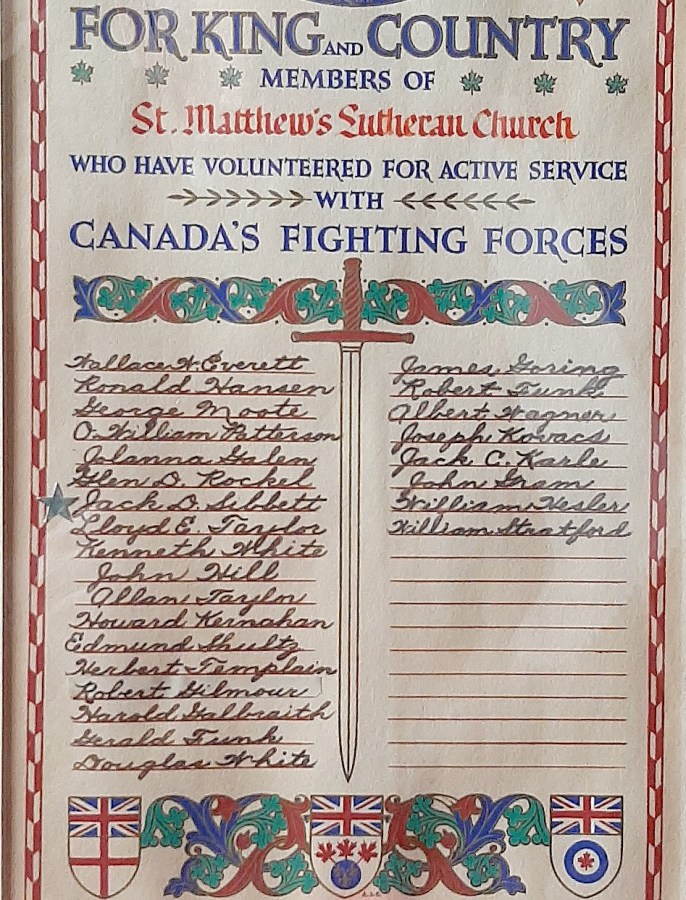 FOR KING AND COUNTRY
MEMBERS OF
St. Matthew's Lutheran Church
WHO HAVE VOLUNTEERED FOR ACTIVE SERVICE
WITH
CANADA'S FIGHTING FORCES
Wallace W. Everett
Ronald Hansen
George Moote
O. William Petterson
Jolanna Galen
Glen D. Rockel
Jack D. Sibbett
Lloyd E. Taylor
Kenneth White
John Hill
Allan Taylor
Howard Kernahan
Edmund Shultz
Herbert Templain
Robert Gilmour
Harold Galbraith
Gerald Funk
Douglas White
James Goring
Robert Funk
Albert Wagner
Joseph Kovacs
Jack C. Karle
John Gram
William Hesler
William Stratford